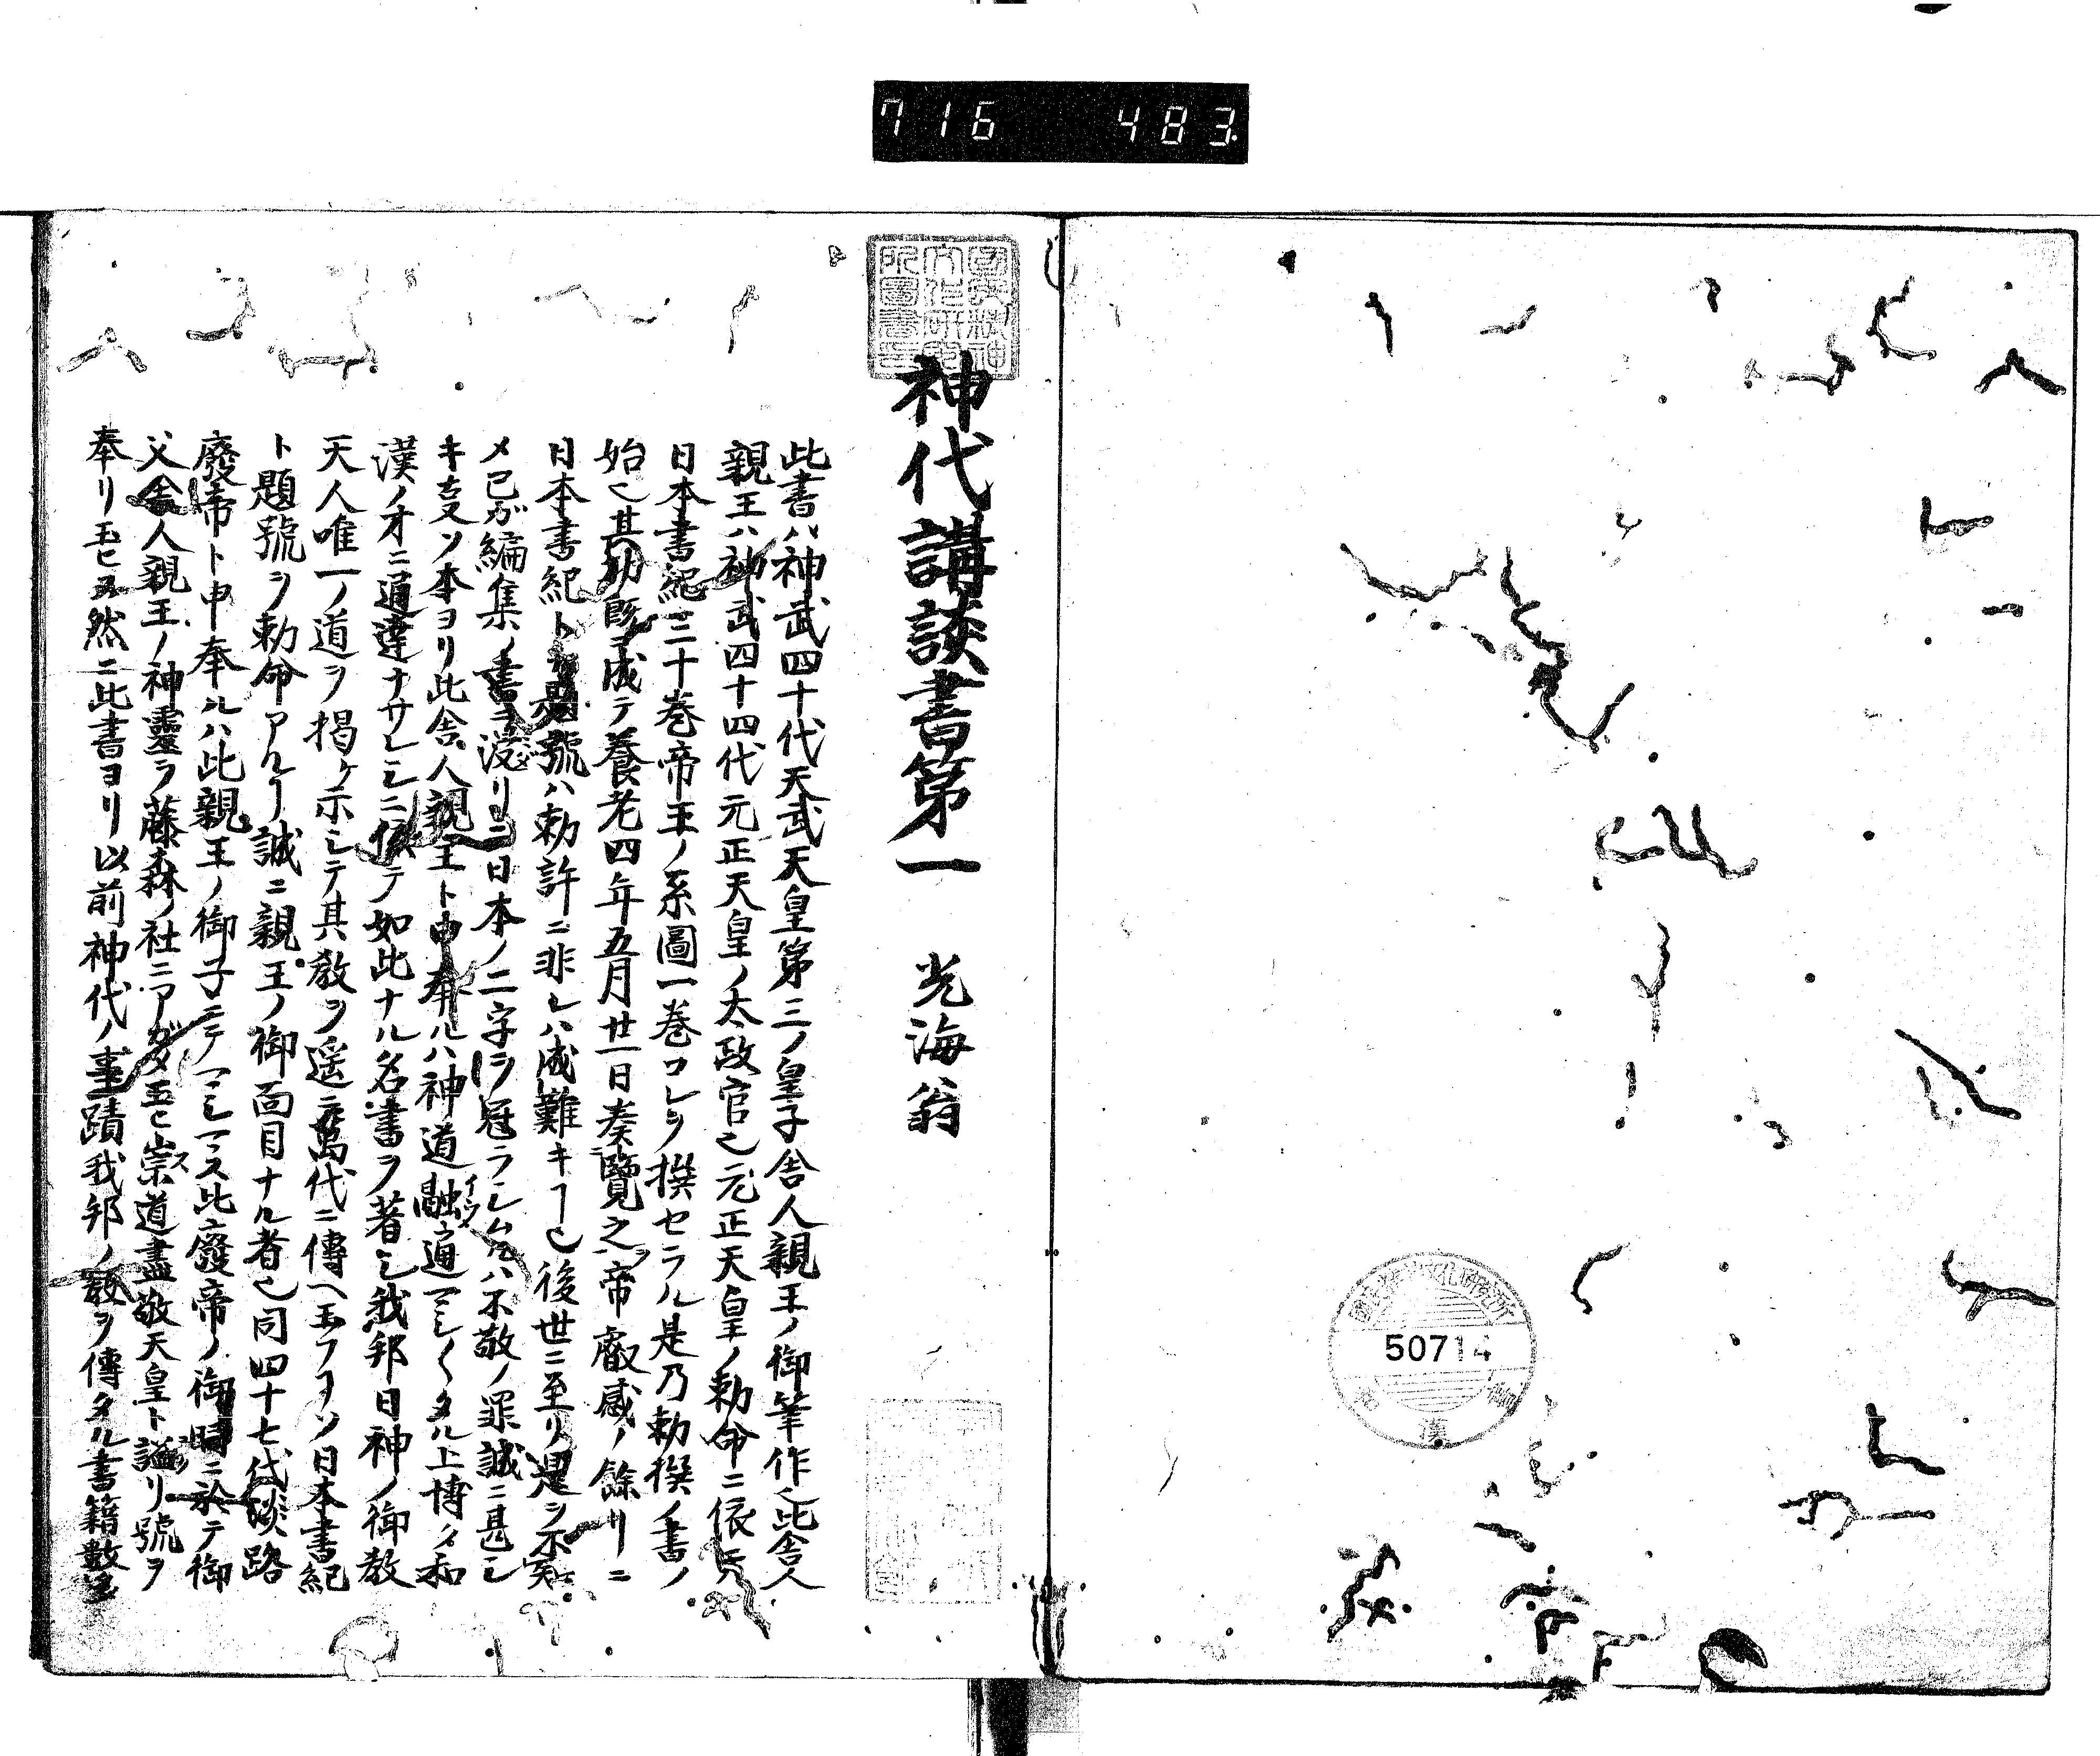 716 483
神代講談書第一 光海翁
此書ハ神武四十代天武天皇第三ノ皇子舎人親王ノ御筆作也此舎人
親王ハ神武四十四代元正天皇ノ太政官也元正天皇ノ勅命ニ依テ
日本書紀三十巻帝王ノ系圖一巻コレヲ撰セラル是乃勅撰ノ書ノ
始也其功既ニ成テ養老四年五月廿一日奏覽之帝叡感ノ餘リニ
日本書紀ト題號ハ勅許ニ非レハ成難キヿ也後世ニ至リ是ヲ不
メ已が編集ノ書ヲ濅リニ日本ノ二字ヲ冠ラレムルハ不敬ノ罪誠ニ甚シ
キ支ソ本ヨリ此舎人親王ト申奉ルハ神道融通マシ〱タル上博ク和
漢ノオニ通達ナサレシニ依テ如此ナル名書ヲ著シ我邦日神ノ御教
天人唯一ノ道ヲ掲ケ示シテ其教ヲ遥ニ萬代ニ傳ヘ玉フヿソ日本書紀
ト題號ヲ勅命アルヿ誠ニ親王ノ御面目ナル者也同四十七代淡路
廢帝ト申奉ルハ此親王ノ御子ニテマシマス此廢帝ノ御時ニ於テ御
父舎人親王ノ神靈ヲ藤森ノ社ニアガメ玉ヒ崇道盡敬天皇ト謚リ號ヲ
奉リ玉ヒヌ然ニ此書ヨリ以前神代ノ事蹟我邦ノ教ヲ傳タル書籍數多
50714